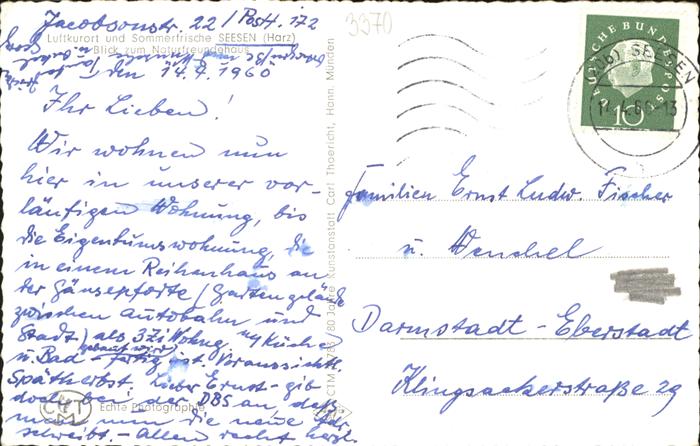 Jacobsonstr. 22 / Postf. 172
Luftkurort und Sommerfrische SEESEN (Harz)
Blick zum Naturfreundehaus
den 14.4.1960
Ihr Lieben!
Wir wohnen nun
hier in unserer vor-
läufigen Wohnung, bis
die Eigentumswohnung, die
in einem Reihenhaus an
der Gänsepforte (Gartengelände
zwischen Autobahn und
Stadt) als 3 Zi Wohng. Küche
gebaut wird
u. Bad fertig ist. Voraussichtl.
Spätherbst. Lieber Ernst - gib
doch bei der DBS an, daß
man nun die neue Adr.
schreibt - Allen recht herzl.
CTM
Echte Photographie
80 Jahre Kunstanstalt Carl Thoericht, Hann. Münden
3370
DEUTSCHE BUNDESPOST
10
SEESEN
14.4.60-13
Familien Ernst Ludw. Fischer
u. Wenchel
Darmstadt-Eberstadt
Klingsackerstraße 29